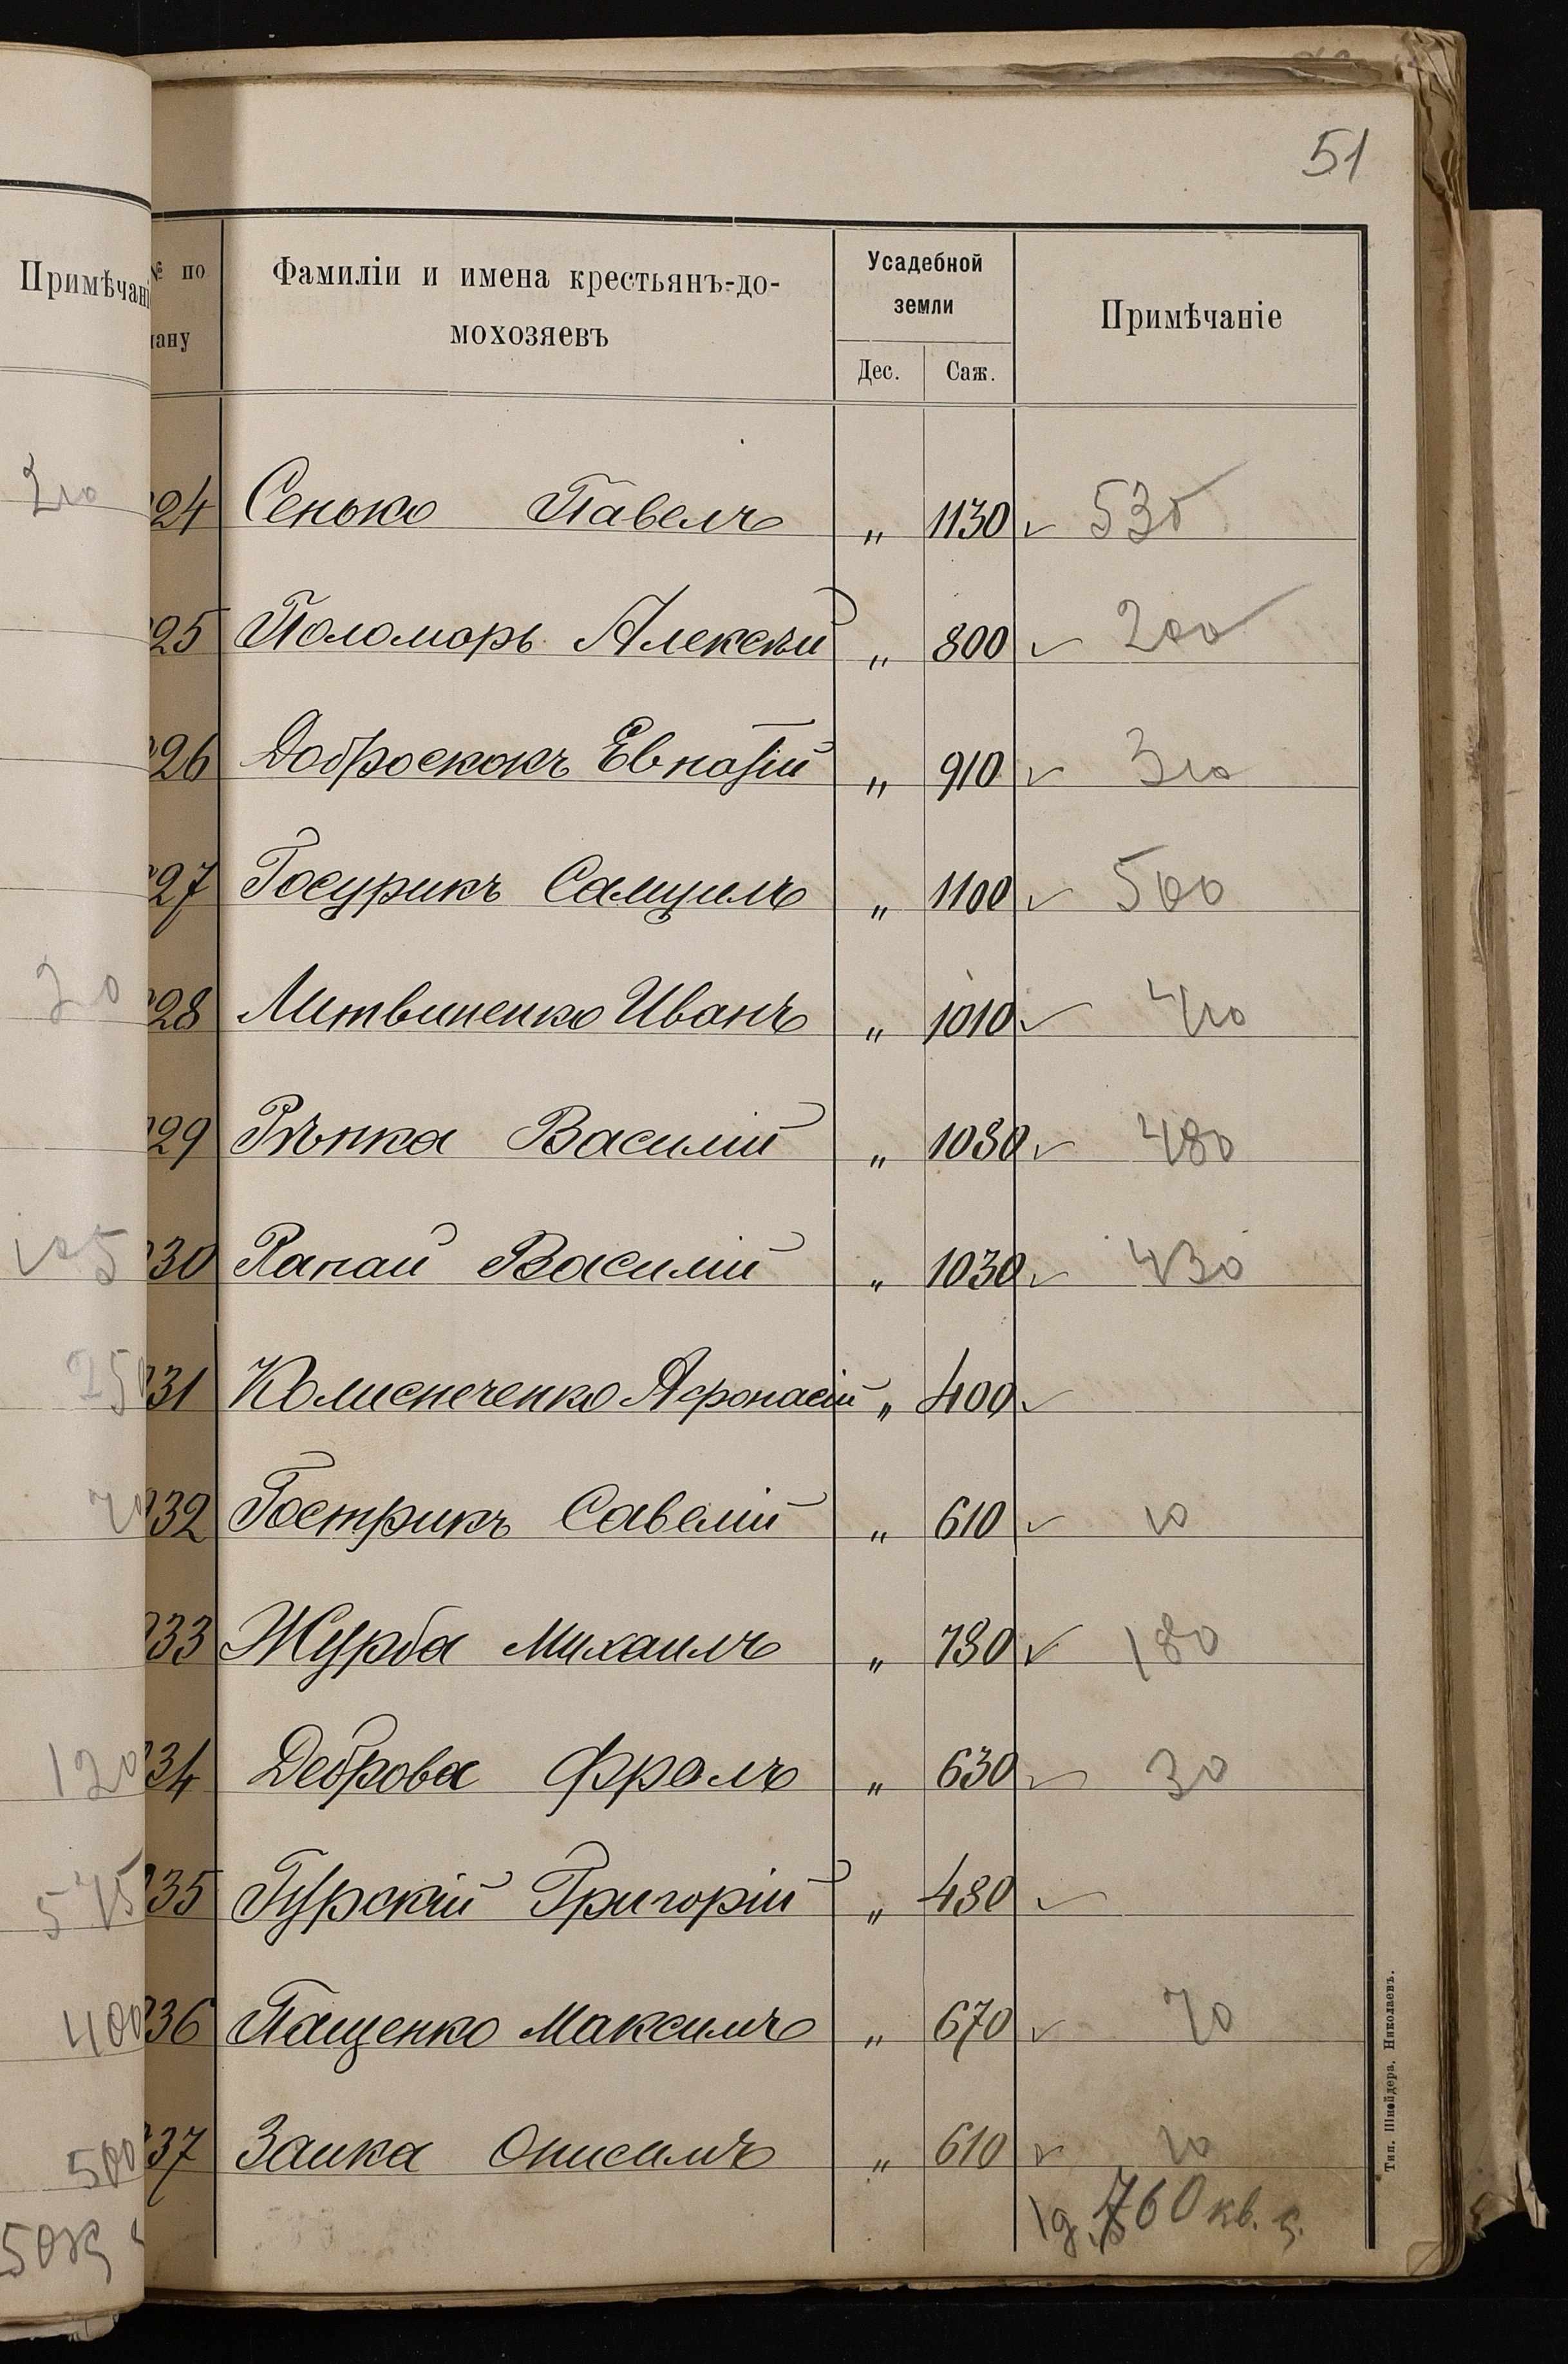 51
Примѣчані
№ по
лану
Фамиліи и имена крестьянъ-до-
мохозяевъ
Усадебной
земли
Дес. Саж.
Примѣчаніе
310
24 Сенько Павелъ " 1130 ✓ 530
25 Поломорь Алексѣй " 800 ✓ 200
26 Доброскокъ Евпатій " 910 ✓ 310
27 Госурикъ Самуилъ " 1100 ✓ 500
28 Литвиненко Иванъ " 1010 ✓ 410
29 Рѣпка Василій " 1080 ✓ 480
30 Папай Василій " 1030 ✓ 430
250 31 Колисниченко Афонасій " 400 ✓
32 Гострикъ Савелій " 610 ✓ 10
33 Журба Михаилъ " 780 ✓ 180
120 34 Деброва Фролъ " 630 ✓ 30
575 35 Гурскій Григорій " 480 ✓
400 36 Пащенко Максимъ " 670 ✓ 70
500 37 Заика Онисимъ " 610 ✓ 10
1д. 760 кв. с.
Тип. Шнейдера, Николаевъ.